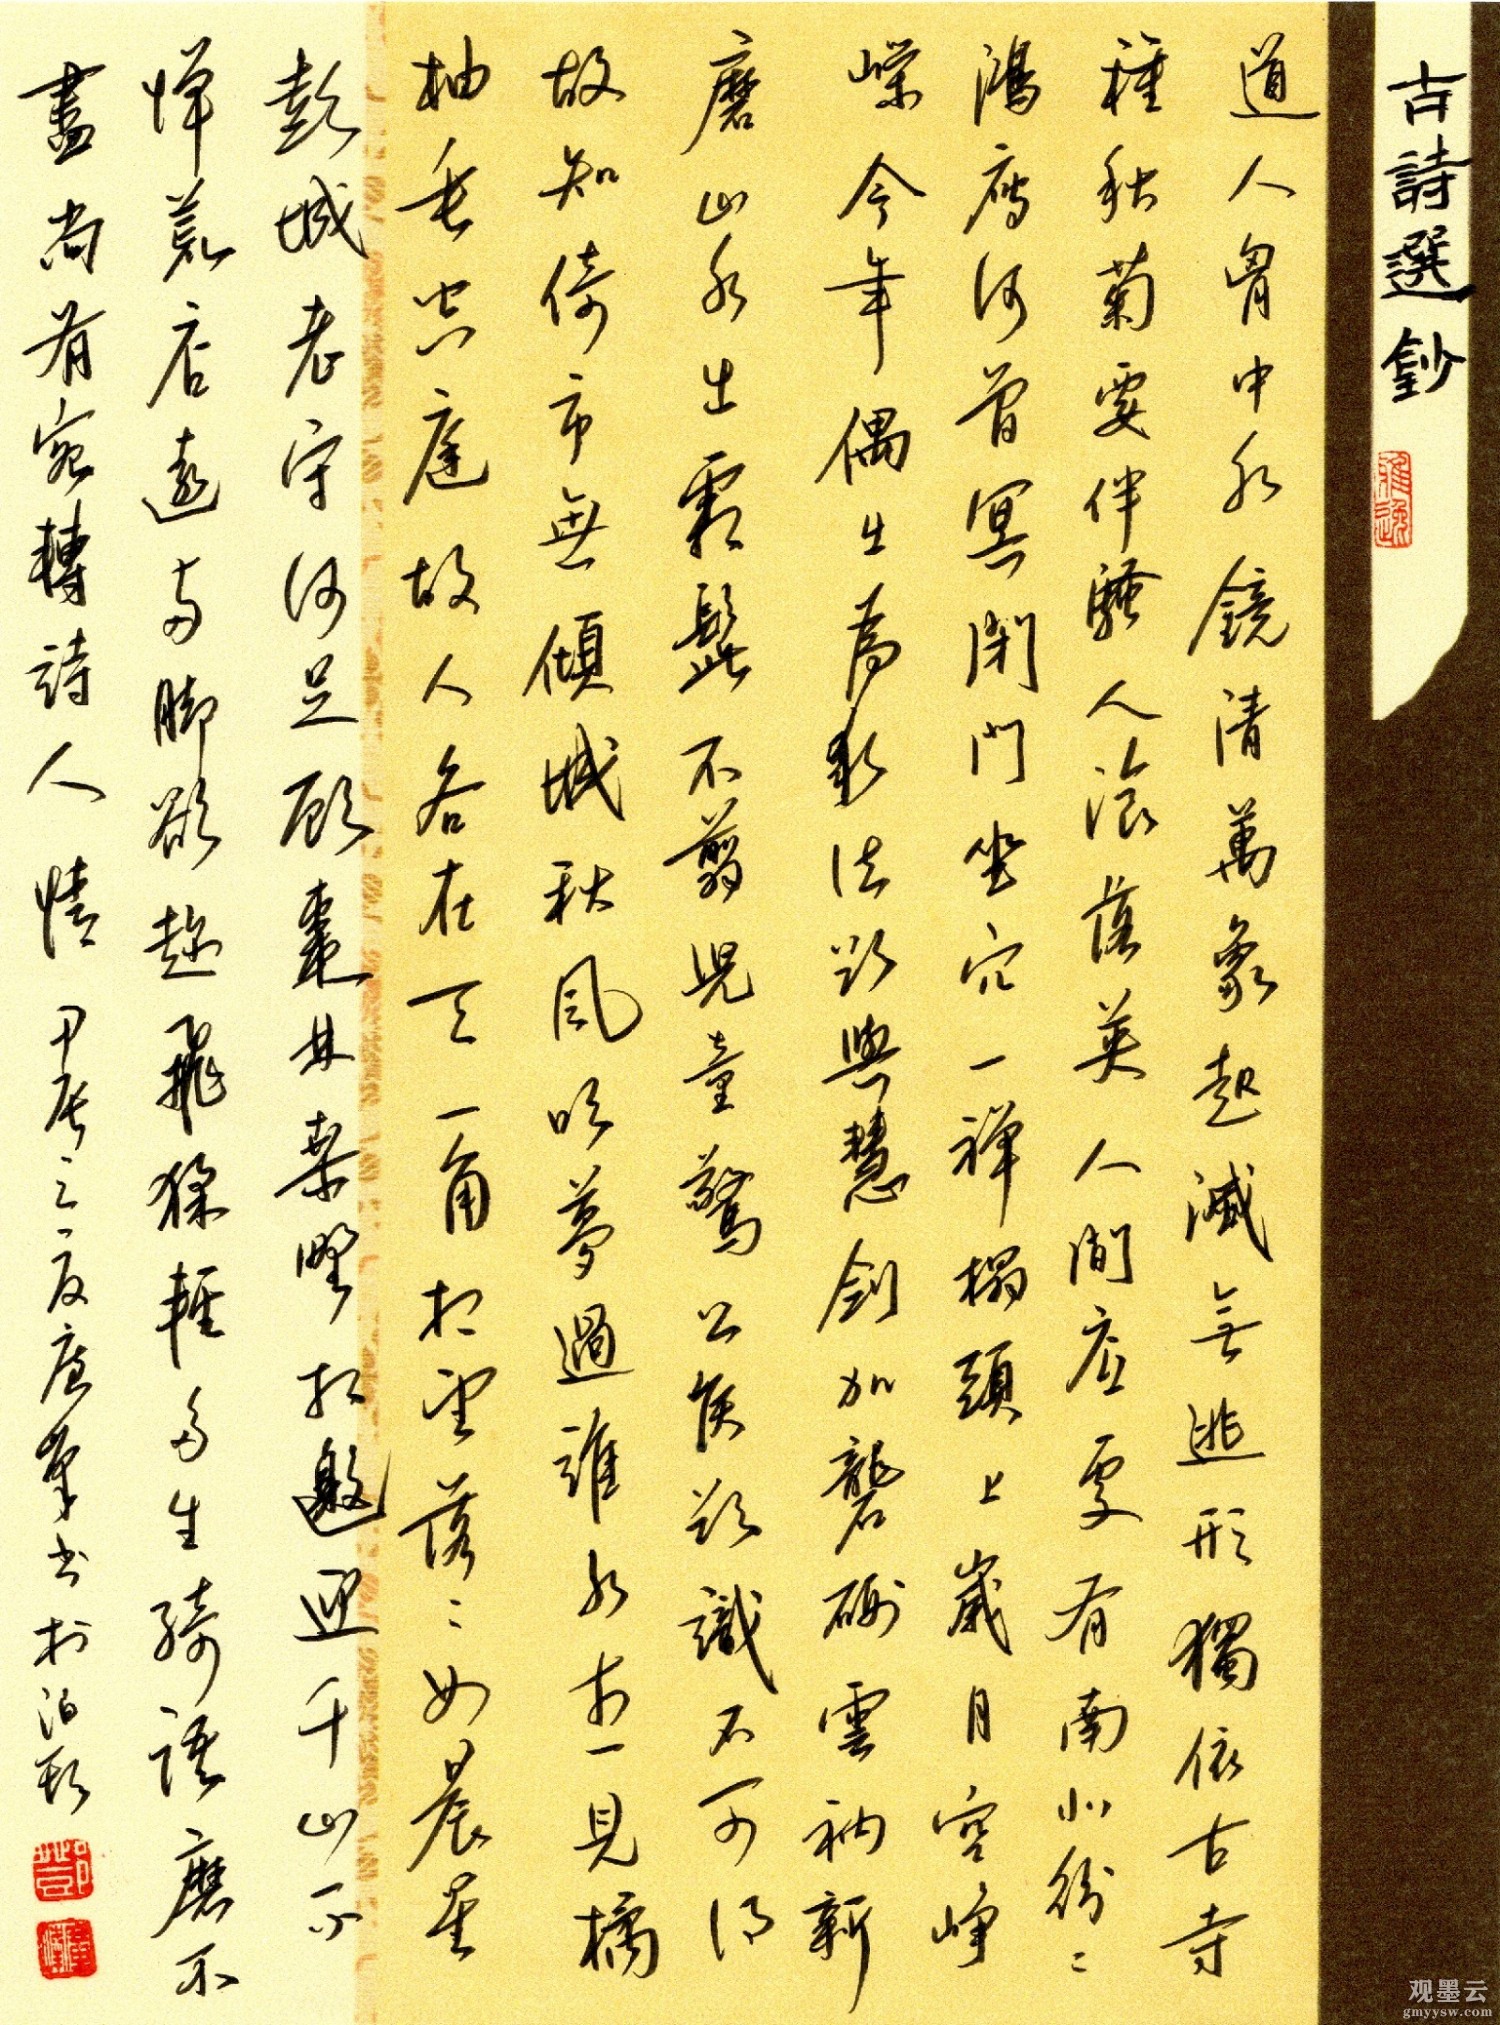 古詩選鈔
雅逸
道人胷中水鏡清萬象起滅無逃形獨依古寺
種秋菊要伴騷人飡落英人間底處有南北紛〻
鴻雁何曾冥閉門坐穴一禪榻頭上歲月空崢
嶸今年偶出為求法欲與慧劍加礱硎雲衲新
磨山水出霜髭不翦兒童驚公侯欲識不可得
故知倚市無傾城秋風吹夢過淮水想見橘
柚垂空庭故人各在天一角相望落〻如晨星
彭城老守何足顧棗林桑野相邀迎千山不
憚荒店遠兩脚欲趁飛猱輕多生綺語磨不
盡尚有宛轉詩人情 甲辰之夏
观墨云
gmyysw.com